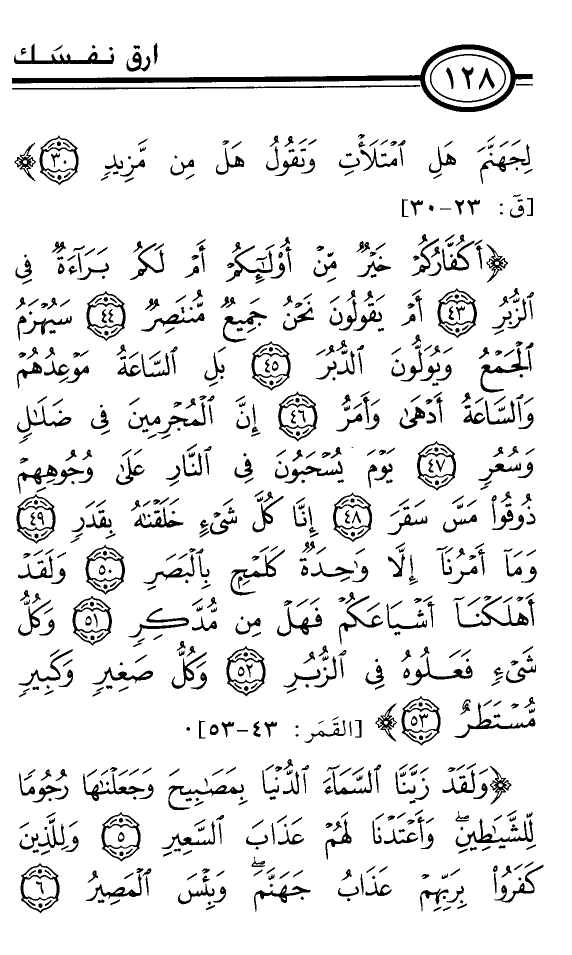 ارق نفسك
١٢٨
لِجَهَنَّمَ هَلِ ٱمْتَلَأْتِ وَتَقُولُ هَلْ مِن مَّزِيدٍ ٣٠﴾
[قَ: ٢٣-٣٠]
﴿أَكُفَّارُكُمْ خَيْرٌ مِّنْ أُوْلَـٰٓئِكُمْ أَمْ لَكُم بَرَآءَةٌ فِى
ٱلزُّبُرِ ٤٣ أَمْ يَقُولُونَ نَحْنُ جَمِيعٌ مُّنتَصِرٌ ٤٤ سَيُهْزَمُ
ٱلْجَمْعُ وَيُوَلُّونَ ٱلدُّبُرَ ٤٥ بَلِ ٱلسَّاعَةُ مَوْعِدُهُمْ
وَٱلسَّاعَةُ أَدْهَىٰ وَأَمَرُّ ٤٦ إِنَّ ٱلْمُجْرِمِينَ فِى ضَلَـٰلٍ
وَسُعُرٍ ٤٧ يَوْمَ يُسْحَبُونَ فِى ٱلنَّارِ عَلَىٰ وُجُوهِهِمْ
ذُوقُوا۟ مَسَّ سَقَرَ ٤٨ إِنَّا كُلَّ شَىْءٍ خَلَقْنَـٰهُ بِقَدَرٍ ٤٩
وَمَآ أَمْرُنَآ إِلَّا وَٰحِدَةٌ كَلَمْحٍۭ بِٱلْبَصَرِ ٥٠ وَلَقَدْ
أَهْلَكْنَآ أَشْيَاعَكُمْ فَهَلْ مِن مُّدَّكِرٍ ٥١ وَكُلُّ
شَىْءٍ فَعَلُوهُ فِى ٱلزُّبُرِ ٥٢ وَكُلُّ صَغِيرٍ وَكَبِيرٍ
مُّسْتَطَرٌ ٥٣﴾ [القَمَر: ٤٣-٥٣].
﴿وَلَقَدْ زَيَّنَّا ٱلسَّمَآءَ ٱلدُّنْيَا بِمَصَـٰبِيحَ وَجَعَلْنَـٰهَا رُجُومًا
لِّلشَّيَـٰطِينِ ۖ وَأَعْتَدْنَا لَهُمْ عَذَابَ ٱلسَّعِيرِ ٥ وَلِلَّذِينَ
كَفَرُوا۟ بِرَبِّهِمْ عَذَابُ جَهَنَّمَ ۖ وَبِئْسَ ٱلْمَصِيرُ ٦